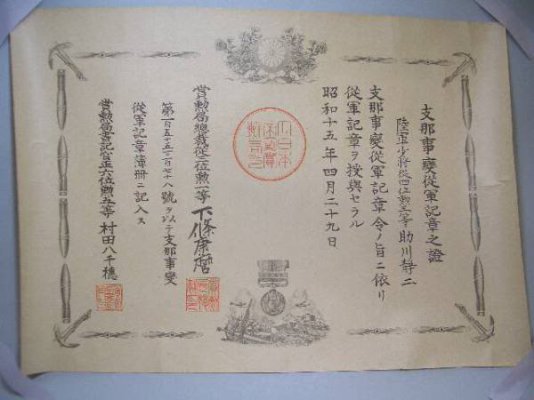 支那事變從軍記章之證
陸軍少將從四位勲三等 助川靜二
支那事變從軍記章令ノ旨ニ依リ
從軍記章ヲ授與セラル
昭和十五年四月二十九日
大日本
帝國賞
勲局印
賞勲局總裁從三位勲一等 下條康麿
第一百五十五万二百七十八號ヲ以テ支那事變
從軍記章簿冊ニ記入ス
賞勲局書記官正六位勲五等 村田八千穗